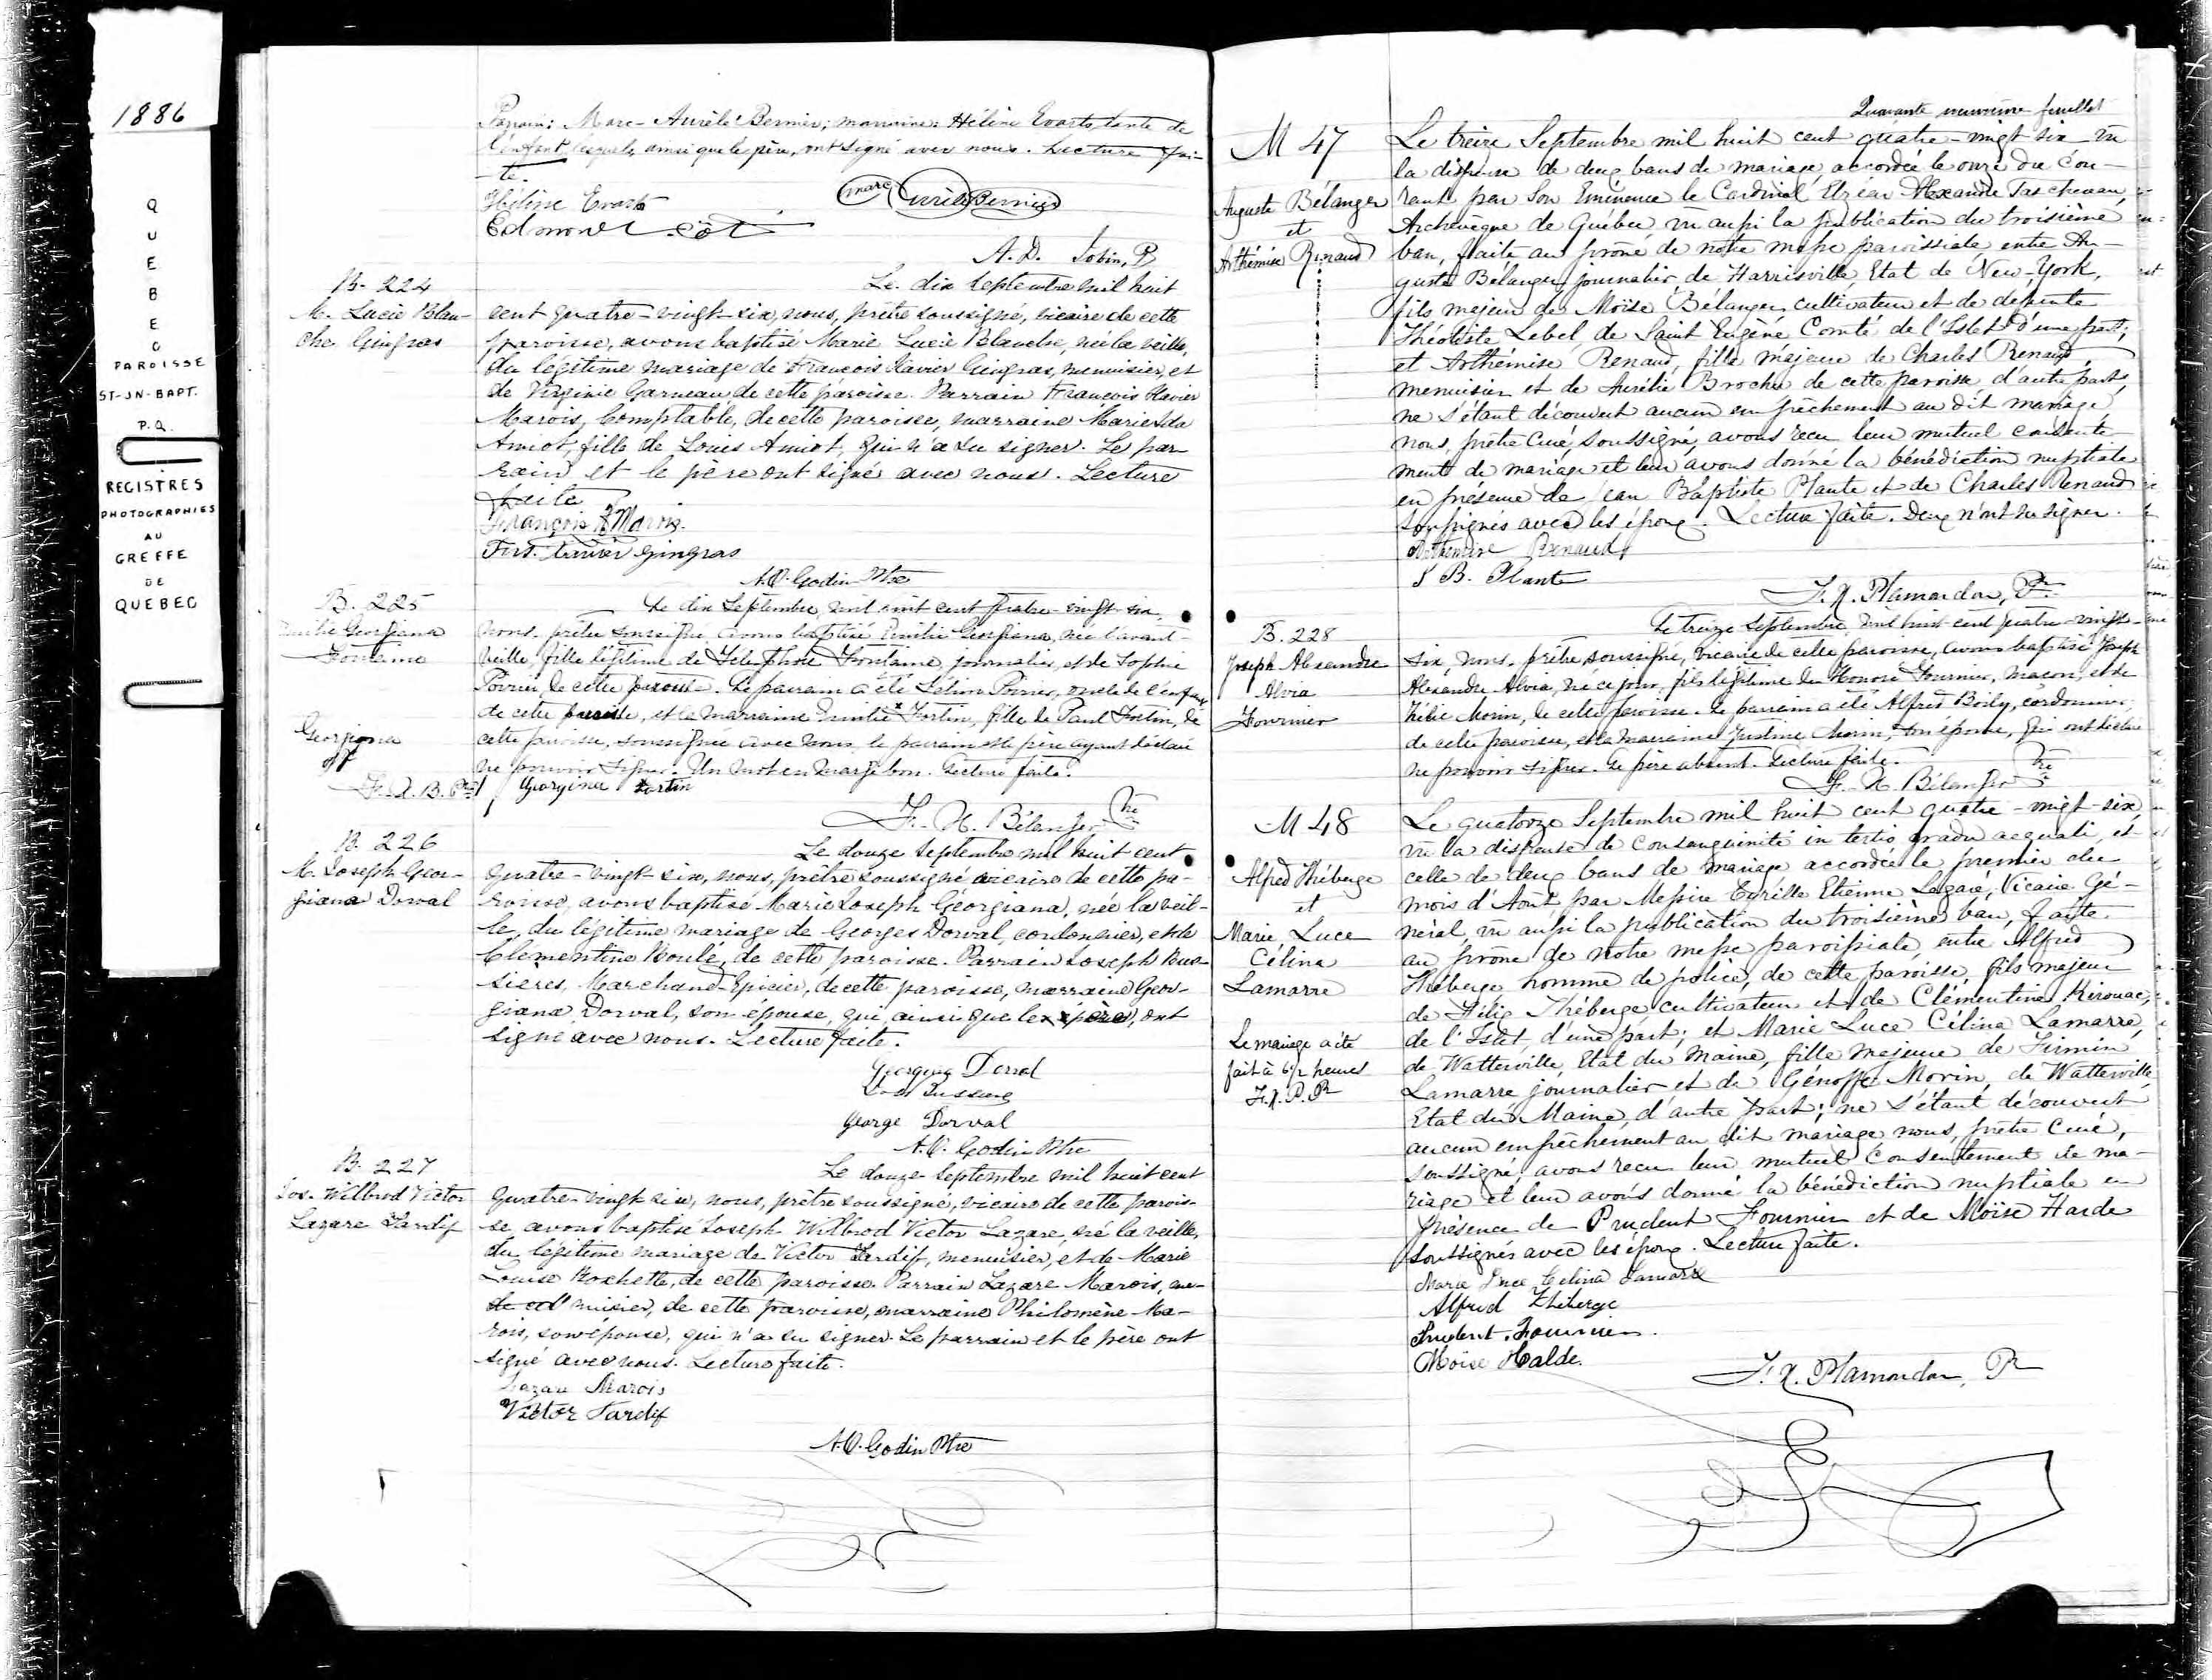 1886
QUEBEC
PAROISSE
ST-JN-BAPT.
P.Q.
REGISTRES
PHOTOGRAPHIES
AU
GREFFE
DE
QUEBEC
Parrain: Marc-Aurèle Bernier; marraine: Hélène Evarts, tante de
l'enfant lesquels, ainsi que le père, ont signé avec nous. Lecture fai-
te.
Hélène Evarts
Marc Aurèle Bernier
Edmond
A. D. Jobin, P
B. 224
M. Lucie Blan-
che Gingras
Le dix septembre mil huit
cent quatre-vingt-six, nous, prêtre soussigné, vicaire de cette
paroisse, avons baptisé Marie Lucie Blanche, née la veille,
du légitime mariage de François Xavier Gingras, menuisier, et
de Virginie Garneau, de cette paroisse. Parrain François Xavier
Marois, Comptable, de cette paroisse, marraine Marie Ida
Amiot, fille de Louis Amiot, qui n'a su signer. Le par-
rain et le père ont signé avec nous. Lecture
faite
François X Marois.
Frs. Xavier Gingras
A.O. Godin Ptre
B. 225
Emilie Georgiana
Fontaine
Le dix Septembre, mil huit cent quatre-vingt-six,
nous, prêtre soussigné, avons baptisé Emilie Georgiana, née l'avant-
veille, fille légitime de Télesphore Fontaine, journalier, et de Sophie
Poirier, de cette paroisse. Le parrain a été Poirier, oncle de l'enfant,
de cette paroisse, et la marraine Emilie x Fortin, fille de Paul Fortin, de
cette paroisse, soussignée avec nous, le parrain et le père ayant déclaré
ne pouvoir signer. Un mot en marge bon. Lecture faite.
Georgiana
F. X. B. Ptre
Georgina Fortin
F.-X. Bélanger Ptre
B. 226
M. Joseph Geor-
giana Dorval
Le douze septembre mil huit cent
quatre-vingt-six, nous, prêtre soussigné vicaire de cette pa-
roisse, avons baptisé Marie Joseph Georgiana, née la veil-
le, du légitime mariage de Georges Dorval, cordonnier, et de
Clémentine Houle, de cette paroisse. Parrain Joseph Bus-
sières, Marchand-Epicier, de cette paroisse, marraine Geor-
giana Dorval, son épouse, qui, ainsi que le père, ont
signé avec nous. Lecture faite.
Georgina Dorval
George Dorval
A.O. Godin Ptre
B. 227
Jos. Wilbrod Victor
Lazare Tardif
Le douze septembre mil huit cent
quatre-vingt six, nous, prêtre soussigné, vicaire de cette parois-
se avons baptisé Joseph Wilbrod Victor Lazare, né la veille,
du légitime mariage de Victor Tardif, menuisier, et de Marie
Louise Rochette, de cette paroisse. Parrain Lazare Marois, me-
nuisier, de cette paroisse, marraine Philomène Ma-
rois, son épouse, qui n'a su signer. Le parrain et le père ont
signé avec nous. Lecture faite.
Lazare Marois
Victor Tardif
A.O. Godin Ptre
Quarante neuvième feuillet
M 47
Auguste Bélanger
et
Arthémise Renaud
Le treize Septembre mil huit cent quatre-vingt six vu
la dispense de deux bans de mariage accordée le onze du cou-
rant par Son Eminence le Cardinal Elzéar Alexandre Taschereau,
Archevêque de Québec, vu aussi la publication du troisième
ban, faite au prône de notre messe paroissiale entre Au-
guste Bélanger, journalier, de Harrisville, Etat de New-York,
fils majeur de Moïse Bélanger, cultivateur et de défunte
Théotiste Lebel, de Saint Eugène, Comté de l'Islet d'une part;
et Arthémise Renaud, fille majeure de Charles Renaud,
menuisier et de Aurélie Brochu de cette paroisse d'autre part,
ne s'étant découvert aucun empêchement au dit mariage,
nous, prêtre Curé, soussigné, avons reçu leur mutuel consente-
ment de mariage et leur avons donné la bénédiction nuptiale
en présence de Jean Baptiste Plante et de Charles Renaud
soussignés avec les époux. Lecture faite. Deux n'ont su signer.
Arthémise Renaud
J B. Plante
F. X. Plamondon, Ptre
B. 228
Joseph Alexandre
Alvia
Fournier
Le treize Septembre, mil huit cent quatre-vingt-
six, nous, prêtre soussigné, vicaire de cette paroisse, avons baptisé Joseph
Alexandre Alvia, né ce jour, fils légitime de Honoré Fournier, maçon, et de
Morin, de cette paroisse. Le parrain a été Alfred Boily, cordonnier,
de cette paroisse, et la marraine Justine Morin, son épouse, qui ont déclaré
ne pouvoir signer. Le père absent. Lecture faite.
F.-X. Bélanger Ptre
M 48
Alfred Théberge
et
Marie Luce
Célina
Lamarre
Le mariage a été
fait à 6½ heures
F.X.P. Ptre
Le quatorze Septembre mil huit cent quatre-vingt-six,
vu la dispense de consanguinité in tertio gradu aequali, et
celle de deux bans de mariage accordée le premier du
mois d'Août, par Messire Cyrille Etienne Legaré, Vicaire Gé-
néral, vu aussi la publication du troisième ban, faite
au prône de notre messe paroissiale, entre Alfred
Théberge homme de police, de cette paroisse, fils majeur
de Félix Théberge cultivateur et de Clémentine Kirouac,
de l'Islet, d'une part; et Marie Luce Célina Lamarre,
de Watterville, Etat du Maine, fille majeure de Firmin
Lamarre journalier et de Génoffe Morin, de Watterville,
Etat du Maine, d'autre part; ne s'étant découvert
aucun empêchement au dit mariage nous, prêtre Curé,
soussigné, avons reçu leur mutuel consentement de ma-
riage et leur avons donné la bénédiction nuptiale en
présence de Prudent Fournier et de Moïse Harde
soussignés avec les époux. Lecture faite.
Marie Luce Celina Lamarre
Alfred Théberge
Prudent Fournier.
Moïse Halde.
F. X. Plamondon, Ptre